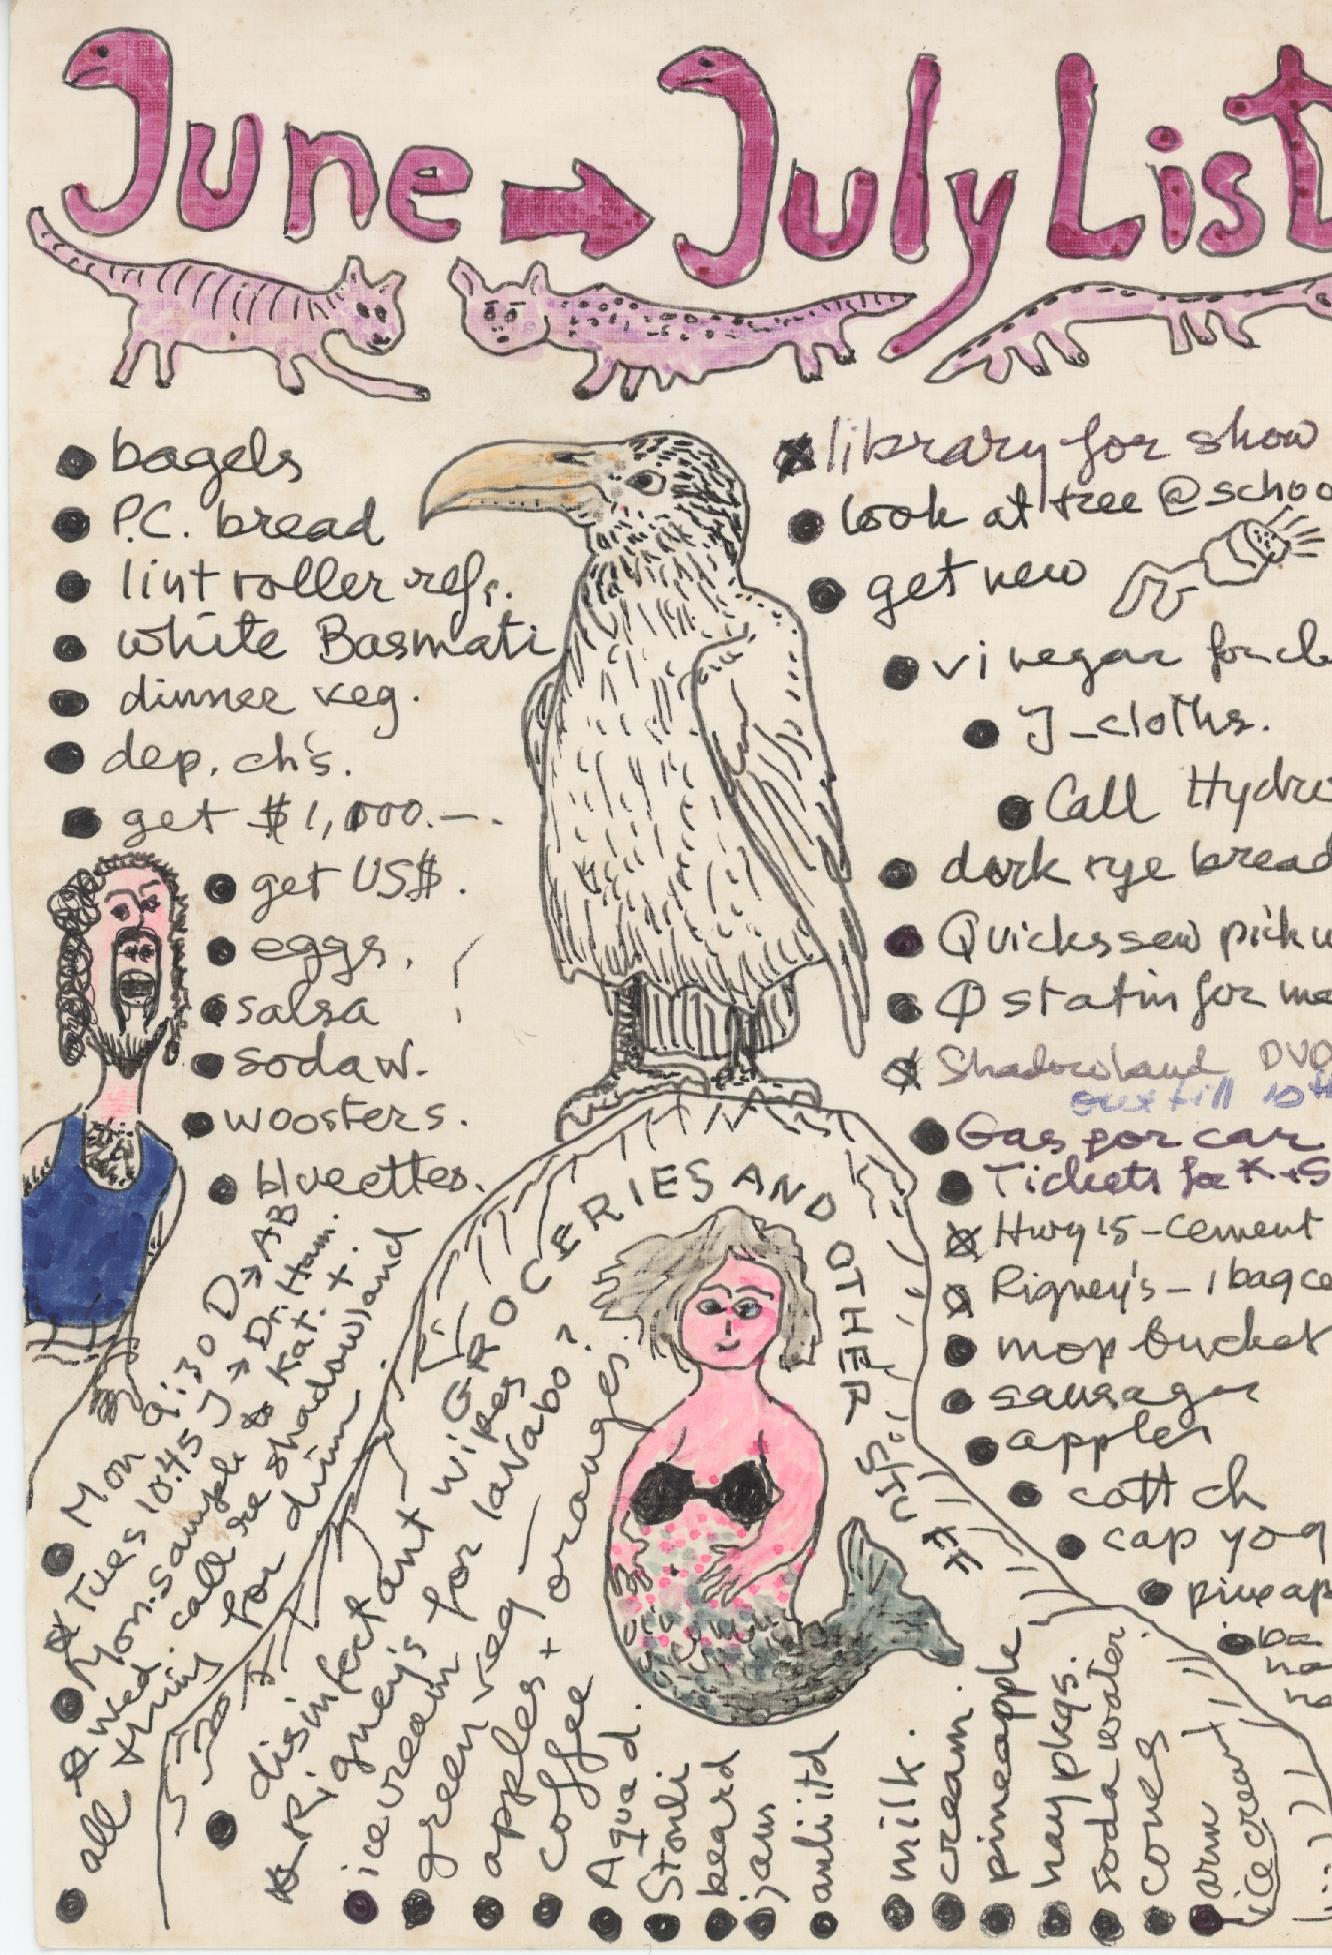 June → July List
bagels
P.C. bread
lint roller refs.
white Basmati
dinner veg.
dep. ch's.
get $1,000.—.
get US$.
eggs.
salsa
soda w.
woosters.
bluettes.
library for show
look at tree @ schoo
get new
vinegar for cl
J-cloths.
Call Hydro
dark rye bread
Quickssew pick u
statin for me
Shadowland DVD
out till 10th
Gas for car
Tickets for K+S
Hwy 15 - cement
Rigney's - 1 bag ce
mop bucket
sausages
apples
cott ch
cap yog
pineap
GROCERIES AND OTHER STUFF
Mon 9:30 D → AB
Tues 10:45 J → Dr. Ham.
Mon. sample Kat. x.
Wed. call re Shadowland
all thing for dinn
disinfectant wipes
Rigney's for lavabo?
ice cream
green veg —
apples + oranges.
coffee
Aqua d.
Stonli
beard
jam
milk.
cream.
pineapple
hay pkgs.
soda water
cones
ice cream